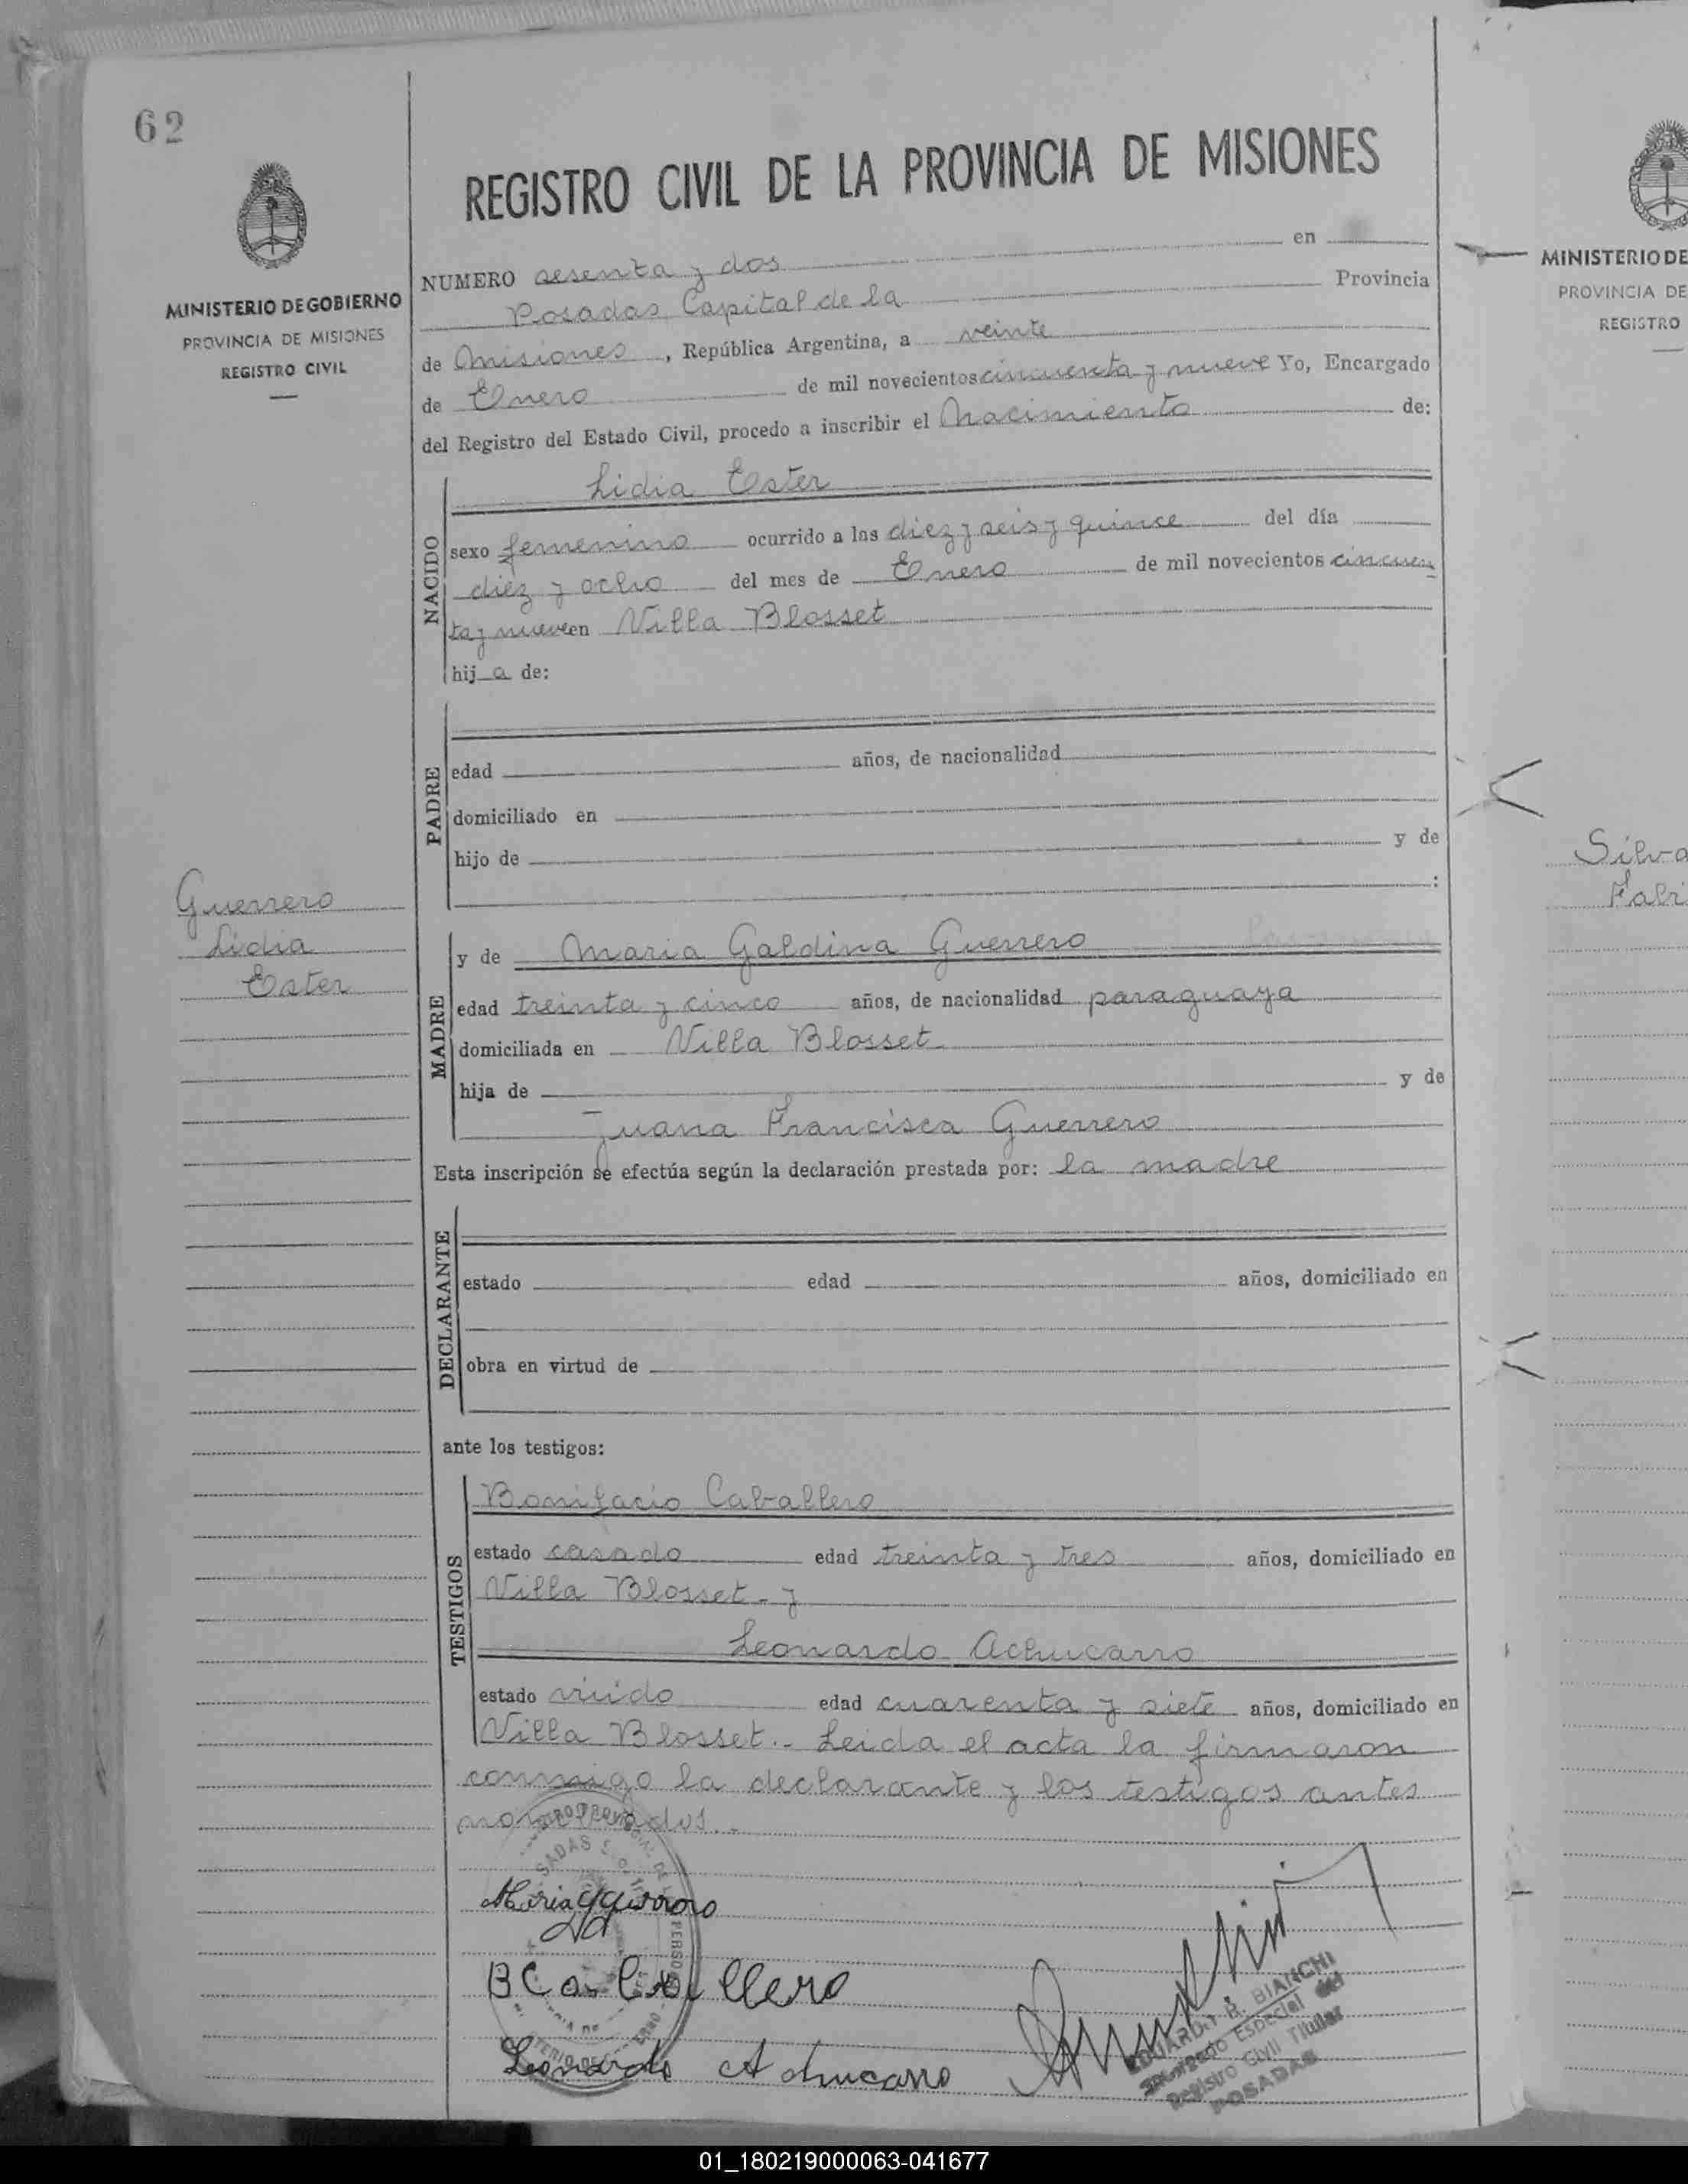 62
MINISTERIO DE GOBIERNO
PROVINCIA DE MISIONES
REGISTRO CIVIL
REGISTRO CIVIL DE LA PROVINCIA DE MISIONES
NUMERO sesenta y dos en
Posadas Capital de la Provincia
de Misiones, República Argentina, a veinte
de Enero de mil novecientos cincuenta y nueve Yo, Encargado
del Registro del Estado Civil, procedo a inscribir el Nacimiento de:
NACIDO
Lidia Ester
sexo femenino ocurrido a las diez y seis y quince del día
diez y ocho del mes de Enero de mil novecientos cincuen
ta y nueve en Villa Blosset
hija de:
PADRE
edad años, de nacionalidad
domiciliado en
hijo de y de
:
Guerrero
Lidia
Ester
MADRE
y de Maria Galdina Guerrero
edad treinta y cinco años, de nacionalidad paraguaya
domiciliada en Villa Blosset
hija de y de
Juana Francisca Guerrero
Esta inscripción se efectúa según la declaración prestada por: la madre
DECLARANTE
estado edad años, domiciliado en
obra en virtud de
ante los testigos:
TESTIGOS
Bonifacio Caballero
estado casado edad treinta y tres años, domiciliado en
Villa Blosset - y
Leonardo Achucarro
estado viúdo edad cuarenta y siete años, domiciliado en
Villa Blosset.- Leida el acta la firmaron
conmigo la declarante y los testigos antes
nombrados.-
Maria
B Caballero
Leonardo Achucarro
EDUARDO R. BIANCHI
Encargado Especial del
Registro Civil Titular
POSADAS
MINISTERIO DE
PROVINCIA DE
REGISTRO
Silva
Fabi
01_180219000063-041677